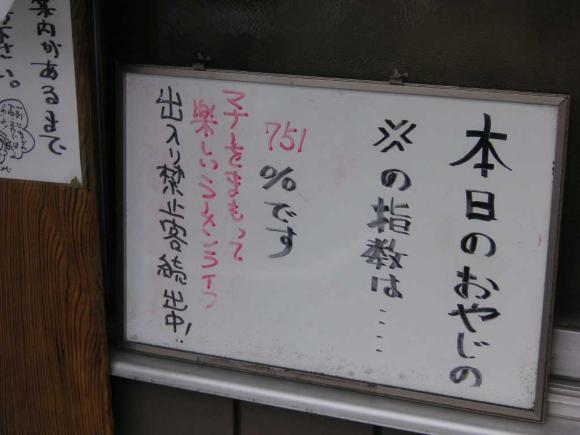 本日のおやじの
※の指数は....
751
%です
マナーをまもって
楽しいラーメンライフ
出入禁止者続出中!
案内があるまで
さい。